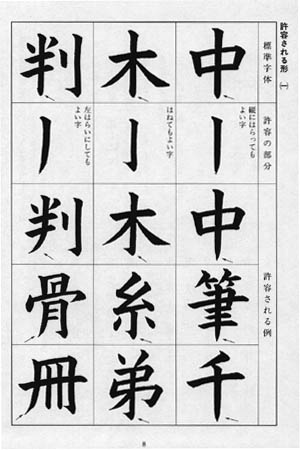 許容される形 (一)
標準字体
許容の部分
許容される例
中
縦にはらっても
よい字
中
筆
千
木
はねても
よい字
木
糸
弟
判
左はらいにしても
よい字
判
骨
冊
8